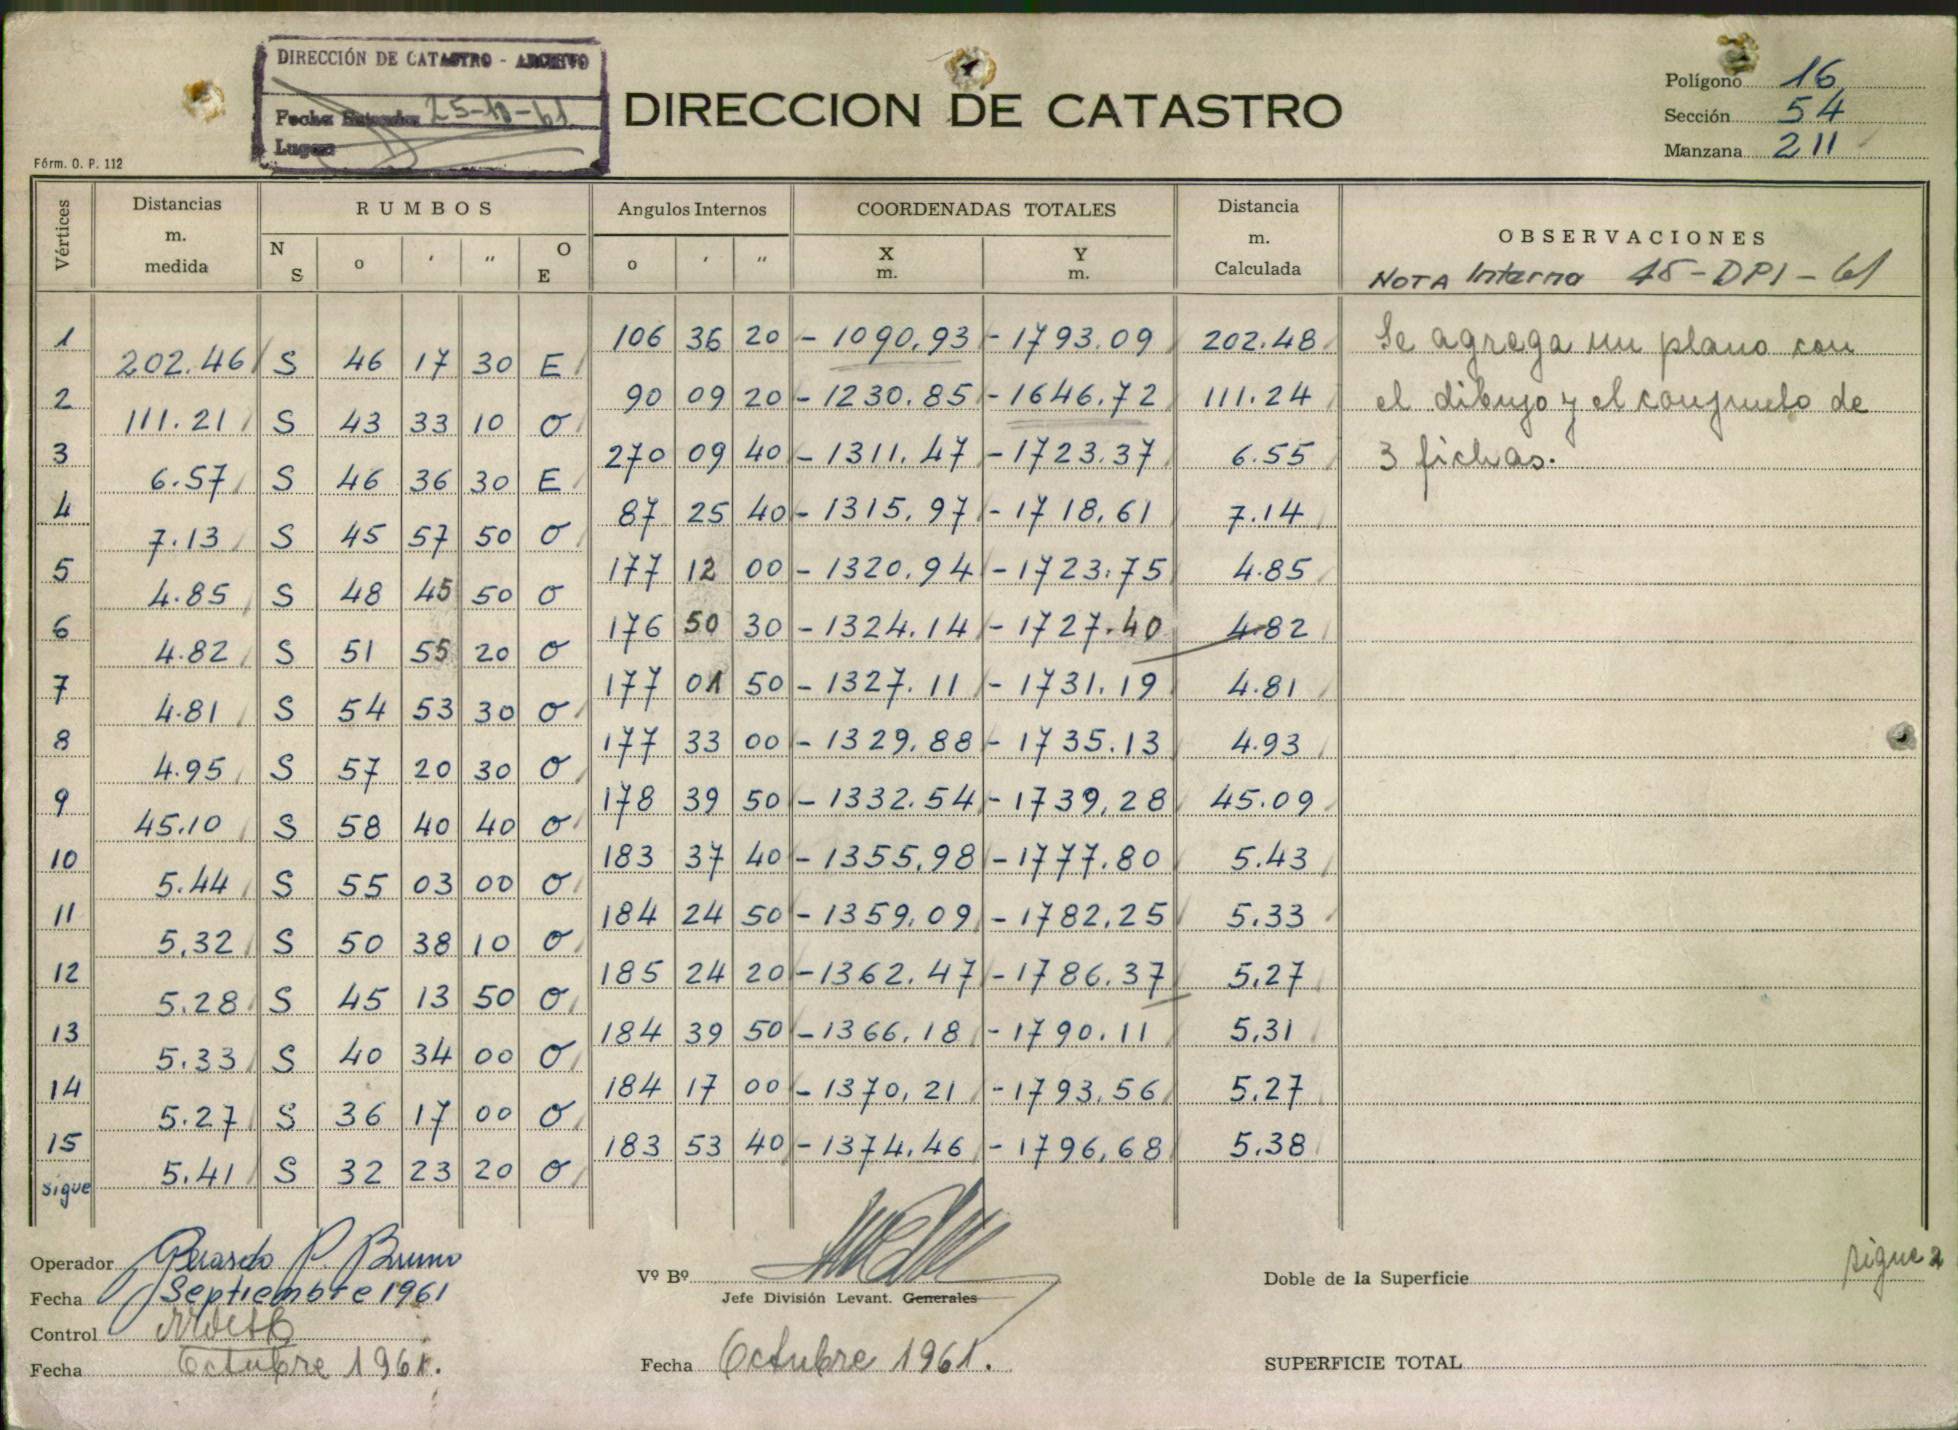 DIRECCIÓN DE CATASTRO - ARCHIVO
Fecha 25-10-61
Lugar
DIRECCION DE CATASTRO
Polígono 16
Sección 54
Manzana 211
Fórm. O. P. 112
Vértices Distancias m. medida RUMBOS N S o ′ ″ O E Angulos Internos o ′ ″ COORDENADAS TOTALES X m. Y m. Distancia m. Calculada OBSERVACIONES
NOTA Interna 45-DPI-61
1 106 36 20 -1090.93 -1793.09 202.48 Se agrega un plano con
202.46 S 46 17 30 E
2 90 09 20 -1230.85 -1646.72 111.24 el dibujo y el conjunto de
111.21 S 43 33 10 O
3 270 09 40 -1311.47 -1723.37 6.55 3 fichas.
6.57 S 46 36 30 E
4 87 25 40 -1315.97 -1718.61 7.14
7.13 S 45 57 50 O
5 177 12 00 -1320.94 -1723.75 4.85
4.85 S 48 45 50 O
6 176 50 30 -1324.14 -1727.40 4.82
4.82 S 51 55 20 O
7 177 01 50 -1327.11 -1731.19 4.81
4.81 S 54 53 30 O
8 177 33 00 -1329.88 -1735.13 4.93
4.95 S 57 20 30 O
9 178 39 50 -1332.54 -1739.28 45.09
45.10 S 58 40 40 O
10 183 37 40 -1355.98 -1777.80 5.43
5.44 S 55 03 00 O
11 184 24 50 -1359.09 -1782.25 5.33
5.32 S 50 38 10 O
12 185 24 20 -1362.47 -1786.37 5.27
5.28 S 45 13 50 O
13 184 39 50 -1366.18 -1790.11 5.31
5.33 S 40 34 00 O
14 184 17 00 -1370.21 -1793.56 5.27
5.27 S 36 17 00 O
15 183 53 40 -1374.46 -1796.68 5.38
sigue 5.41 S 32 23 20 O
Operador Gerardo P. Bruno
Fecha Septiembre 1961
Control
Fecha Octubre 1961.
Vº Bº
Jefe División Levant. Generales
Fecha Octubre 1961.
Doble de la Superficie sigue 2
SUPERFICIE TOTAL